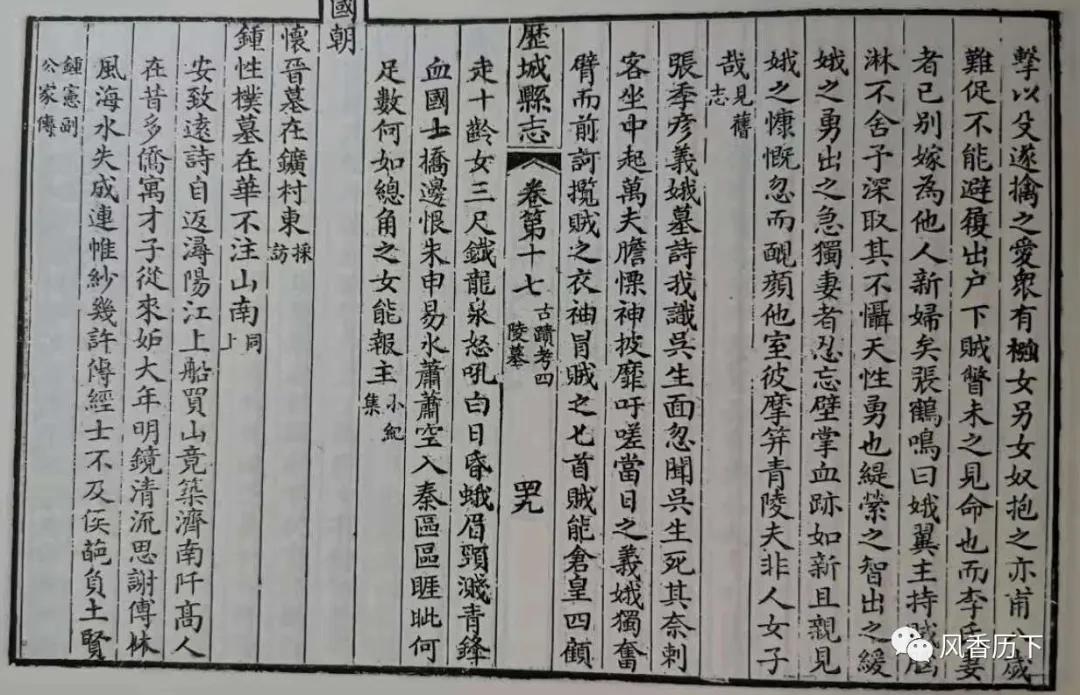 擊以殳遂擒之愛衆有襁女另女奴抱之亦甫八歲
難促不能避獲出户下賊瞥未之見命也而李氏妻
者已別嫁為他人新婦矣張鶴鳴曰娥翼主持賊
淋不舍予深取其不懾天性勇也緹縈之智出之緩
娥之勇出之急獨妻者忍忘壁掌血跡如新且親見
娥之慷慨忽而醜顔他室彼摩笄青陵夫非人女子
哉見舊志
張季彦義娥墓詩我識呉生面忽聞呉生死其奈刺
客坐中起萬夫膽慄神披靡吁嗟當日之義娥獨奮
臂而前訶攬賊之衣袖冒賊之匕首賊能倉皇四顧
歷城縣志 卷第十七 古蹟考四 陵墓 四九
走十齡女三尺鐵龍泉怒吼白日昏蛾眉頸濺青鋒
血國士橋邊恨朱申易水蕭蕭空入秦區區睚眦何
足數何如總角之女能報主小紀集
國朝
懷晉墓在鑛村東採訪
鍾性樸墓在華不注山南同上
安致遠詩自返潯陽江上船買山竟築濟南阡髙人
在昔多僑寓才子從來妬大年明鏡清流思謝傅林
風海水失成連惟紗幾許傳經士不及侯葩負土賢
鍾憲副公家傳
风香历下